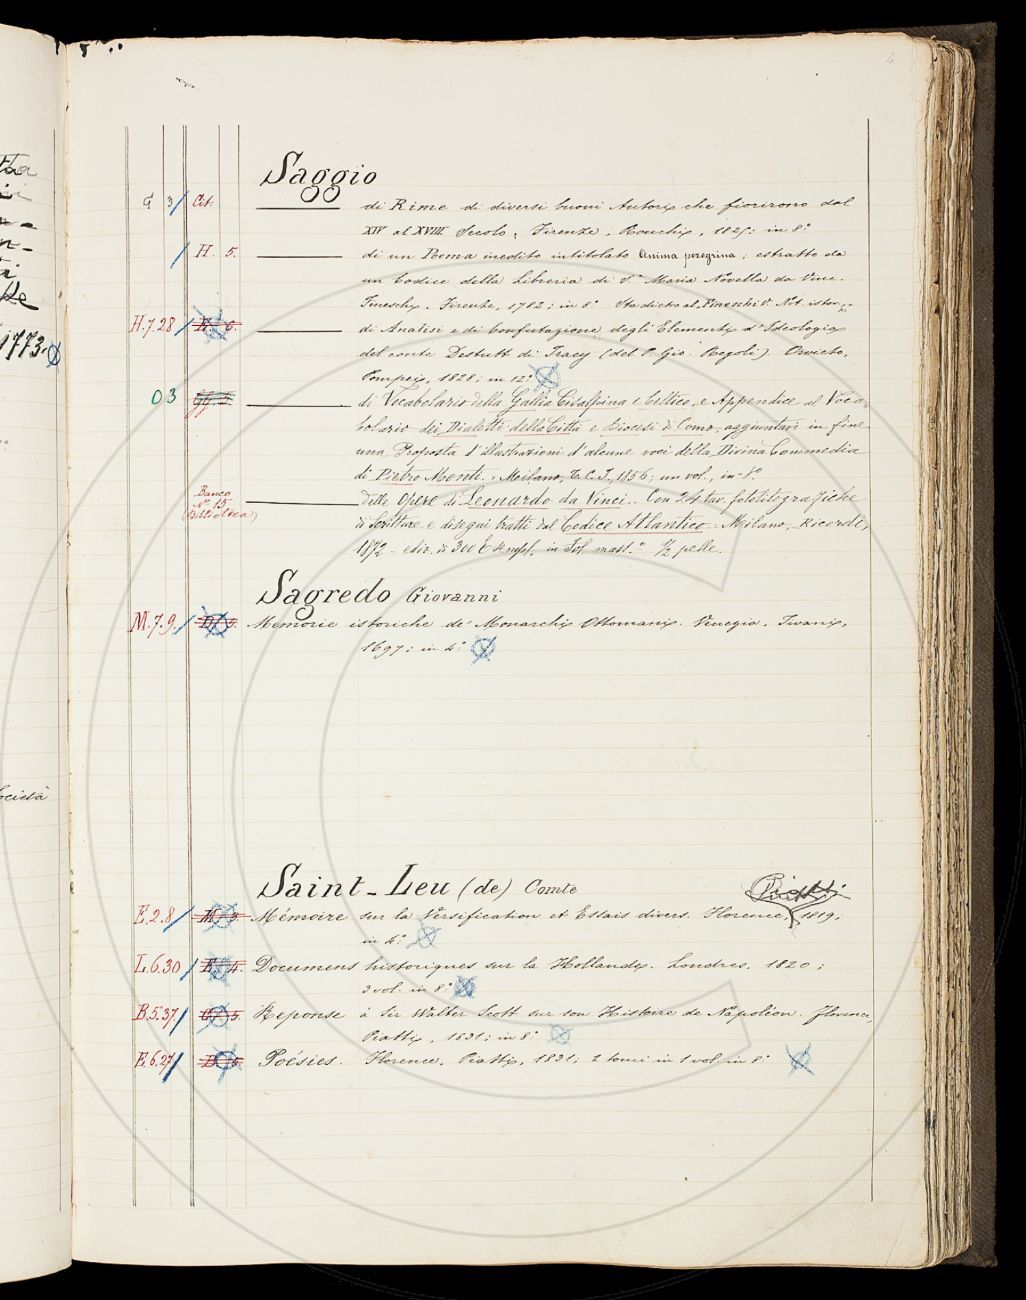 Saggio
G 3 / Cit. di Rime di diversi buoni Autori che fiorirono dal
XIV al XVIII Secolo, Firenze, Ronchi, 1825; in 8°
/ H. 5. di un Poema inedito intitolato Anima peregrina; estratto da
un Codice della Libreria di S.ª Maria Novella da Vinc.
Fineschi. Firenze, 1782; in 8° Sta dietro al
H.7.28 / di Analisi e di Confutazione degli Elementi d'Ideologia
del conte Destutt di Tracy (del P. Gio. Regoli). Orvieto,
Pompei, 1828; in 12°
O 3 di Vocabolario della Gallia Cisalpina e Celtico, e Appendice al Voca-
bolario dei Dialetti della Città e Diocesi di Como, aggiuntavi in fine
una Proposta d'illustrazioni d'alcune voci della Divina Commedia
di Pietro Monti. Milano, T.C.I., 1856; un vol., in 8°
Banco
N° 15
(Biblioteca)
delle Opere di Leonardo da Vinci. Con 24 tav. fotolitografiche
di Scritture e disegni tratti dal Codice Atlantico. Milano, Ricordi,
1872 - ediz. di 300 Esempl. in fol. mass.° ½ pelle.
Sagredo Giovanni
M.7.9. / Memorie istoriche de' Monarchi Ottomani. Venezia,
1697; in 4°
Società
1773.
Saint-Leu (de) Comte
E.2.8 / M. 3 Mémoire sur la Versification et Essais divers. Florence, 1819;
in 4°
L.6.30 / E. 4. Documens historiques sur la Hollande. Londres, 1820;
3 vol. in 8°
B.5.37 / Reponse à Sir Walter Scott sur son Histoire de Napoléon. Florence,
Piatti, 1831; in 8°
E.6.27 / Poésies. Florence, Piatti, 1831; 2 tomi in 1 vol. in 8°